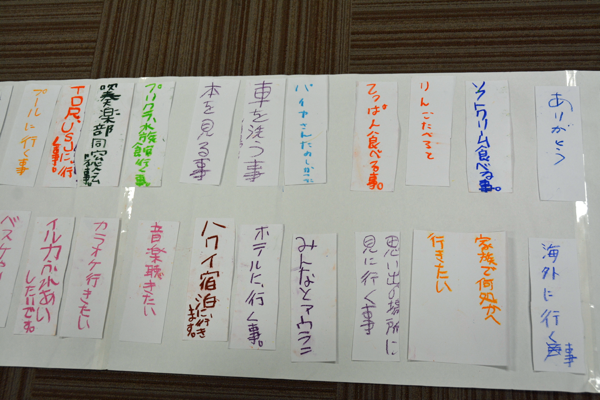 ありがとう
ソフトクリーム食べる事。
りんごたべると
てっぱん食べる事。
車を洗う事
本を見る事
プリクラ水族館行く事
吹奏楽部同窓会
TDR、USJに、行く事。
プールに行く事
海外に行く事
家族で何処かへ
行きたい
思い出の場所に
見に行く事
みんなとアウラニ
ホテルに、行く事。
ハワイ宿泊に行き
ます。
音楽聴きたい
カラオケ行きたい
イルカふれあい
したいです。